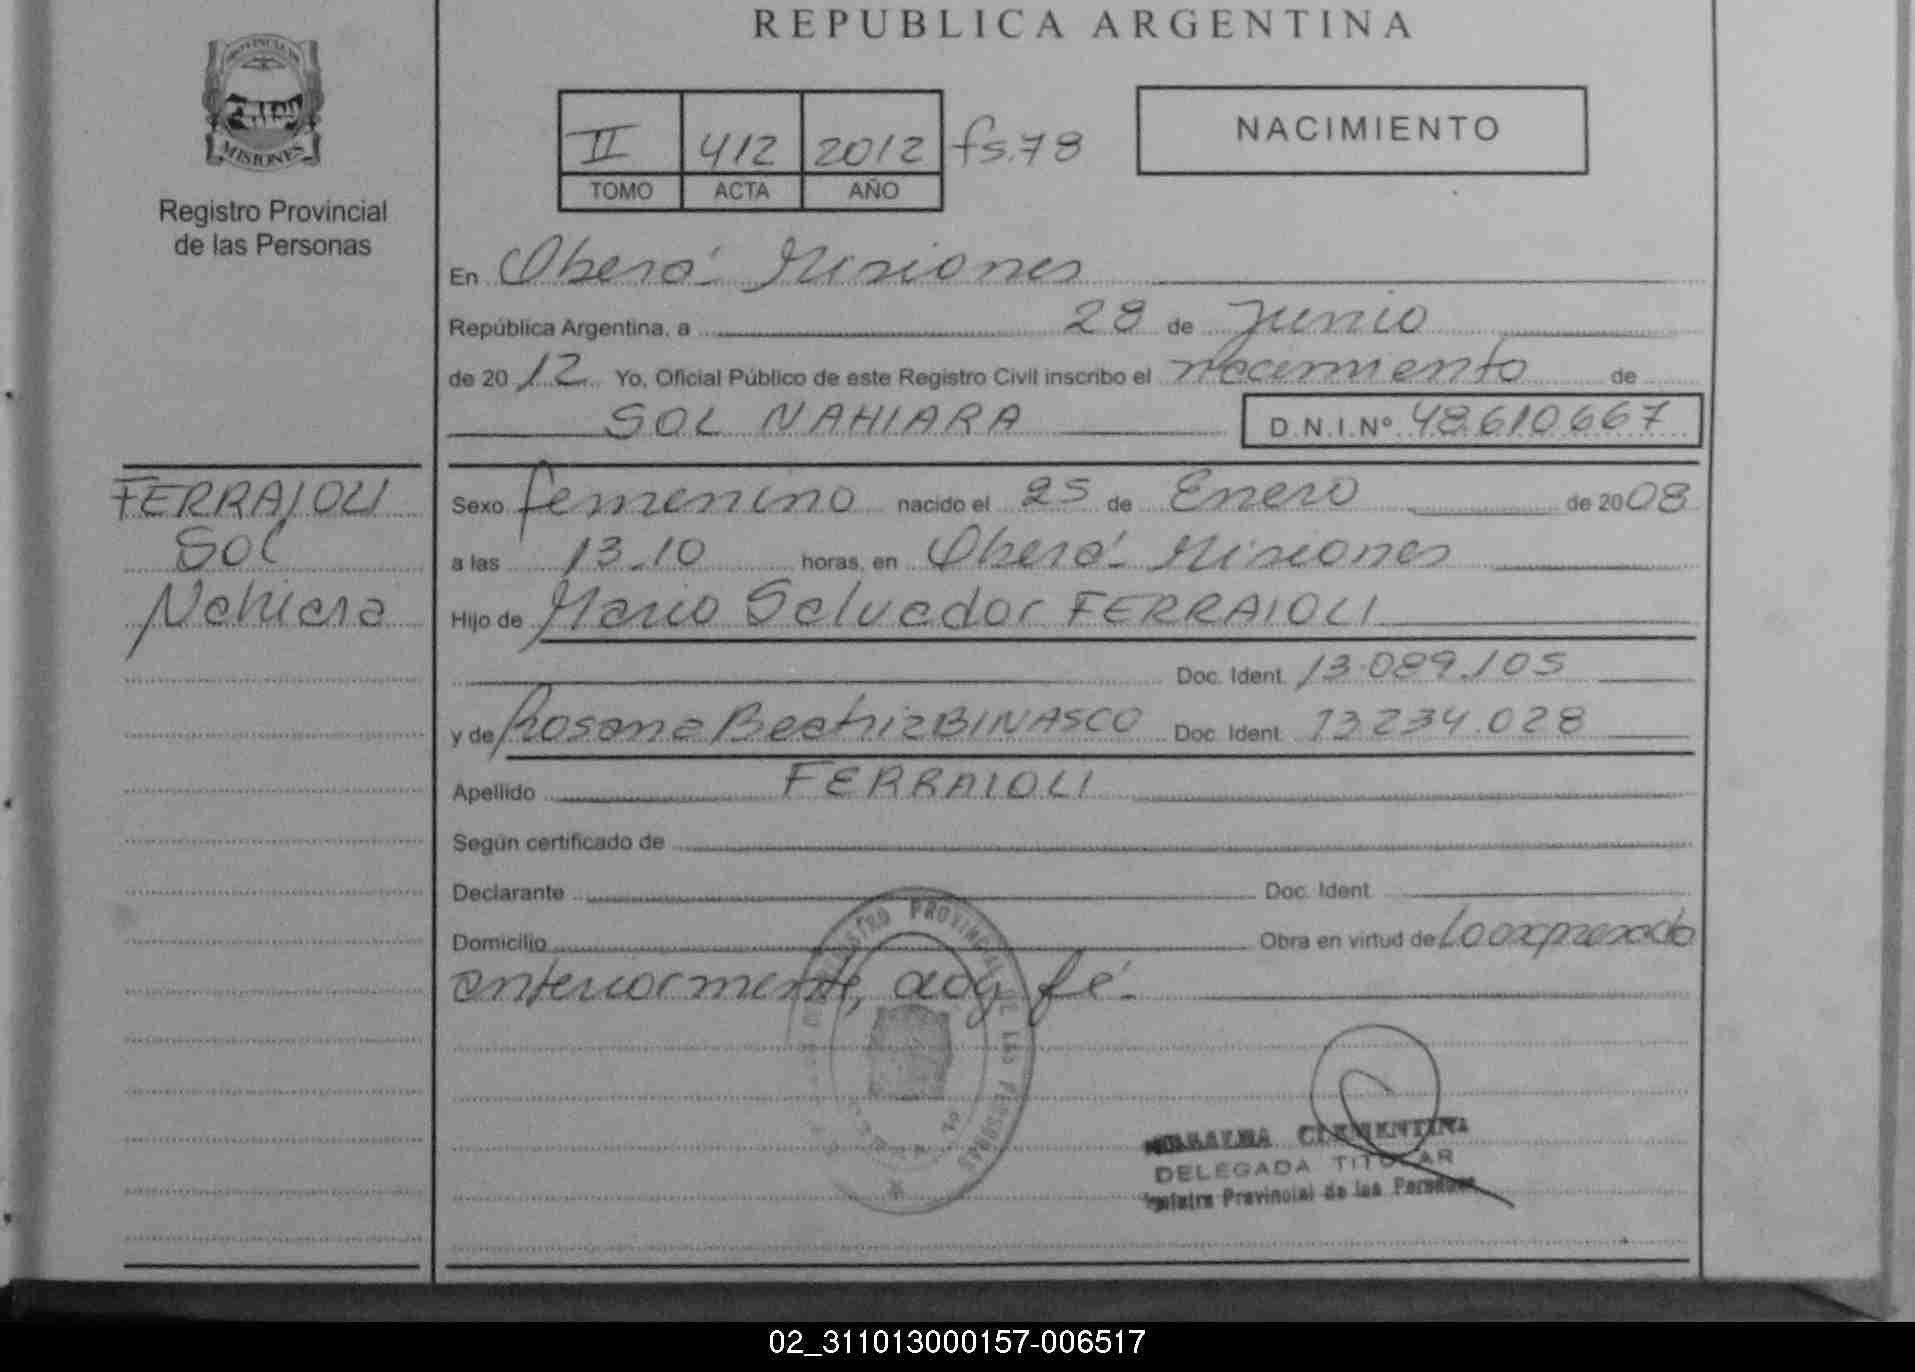 REPUBLICA ARGENTINA
PROVINCIA DE
MISIONES
Registro Provincial
de las Personas
II 412 2012 fs.78
TOMO ACTA AÑO
NACIMIENTO
En Oberá Misiones
República Argentina, a 28 de Junio
de 2012 Yo, Oficial Público de este Registro Civil inscribo el nacimiento de
SOL NAHIARA D.N.I.Nº 48.610.667
FERRAIOLI
Sol
Nahiara
Sexo femenino nacido el 25 de Enero de 2008
a las 13.10 horas, en Oberá Misiones
Hijo de Mario Salvador FERRAIOLI
Doc. Ident. 13.089.105
y de Rosana Beatriz BINASCO Doc. Ident. 13.234.028
Apellido FERRAIOLI
Según certificado de
Declarante Doc. Ident.
Domicilio Obra en virtud de Lo expresado
anteriormente, doy fé.
REGISTRO PROVINCIAL DE LAS PERSONAS
CLEMENTINA
DELEGADA TITULAR
Provincial de las Personas
02_311013000157-006517